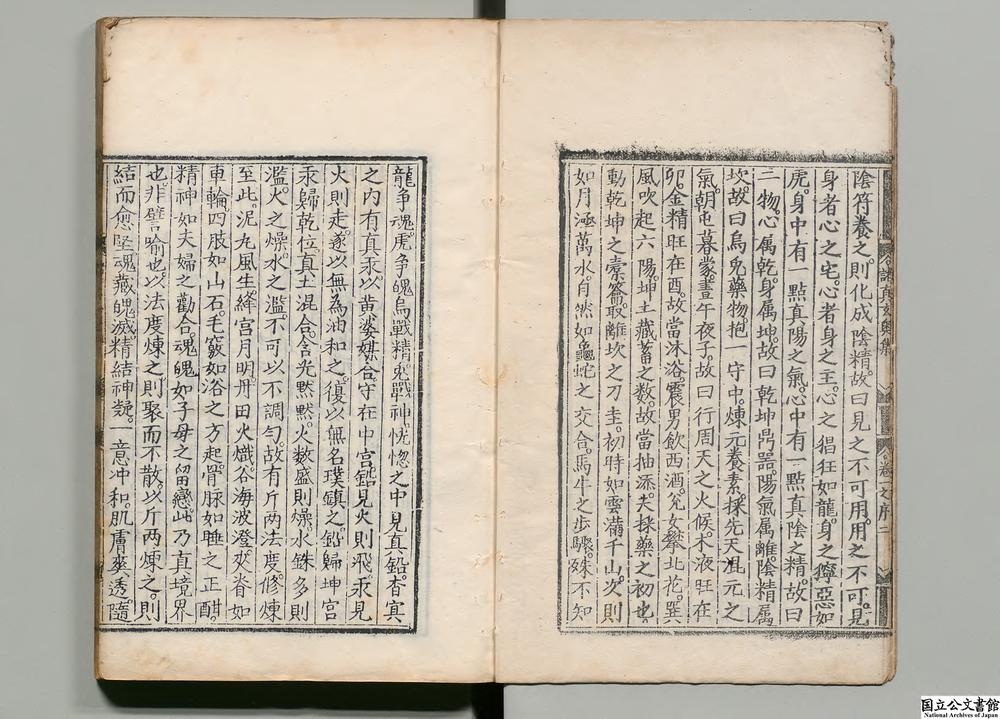 陰符養之。則化成陰精。故曰見之不可用。用之不可見。
身者心之宅。心者身之主。心之猖狂如龍。身之獰惡如
虎。身中有一點真陽之氣。心中有一點真陰之精。故曰
二物。心属乾。身属坤。故曰乾坤鼎噐。陽氣属離。陰精属
坎。故曰烏兎藥物。抱一守中。煉元養素。採先天混元之
氣。朝屯暮蒙。晝午夜子。故曰行周天之火候。木液旺在
卯。金精旺在酉。故當沐浴。震男飲西酒。兊女攀北花。巽
風吹起六陽。坤土藏蓄之数。故當抽添。夫採藥之初也。
動乾坤之橐籥。取離坎之刀圭。初時如雲滿千山。次則
如月涵萬水。自然如龜蛇之交合。馬牛之步驟。殊不知
諸真玄奥集
卷一之序
二
龍争魂。虎争魄。烏戰精。兎戰神。恍惚之中見真鉛。杳冥
之内有真汞。以黄婆媒合守在中宫。鉛見火則飛。汞見
火則走。遂以無為油和之。復以無名璞鎮之。鉛歸坤宫
汞歸乾位。真土混合。含光黙黙。火数盛則燥。水銖多則
濫。火之燥。水之濫。不可以不調匀。故有斤两法度。修煉
至此。泥丸風生。絳宫月明。丹田火熾。谷海波澄。夾脊如
車輪。四肢如山石。毛竅如浴之方起。骨脉如睡之正酣。
精神如夫婦之歡合。魂魄如子母之留戀。此乃真境界
也。非譬喻也。以法度煉之。則聚而不散。以斤两煉之。則
結而愈堅。魂藏魄滅。精結神凝。一意冲和。肌膚爽透。隨
国立公文書館
National Archives of Japan